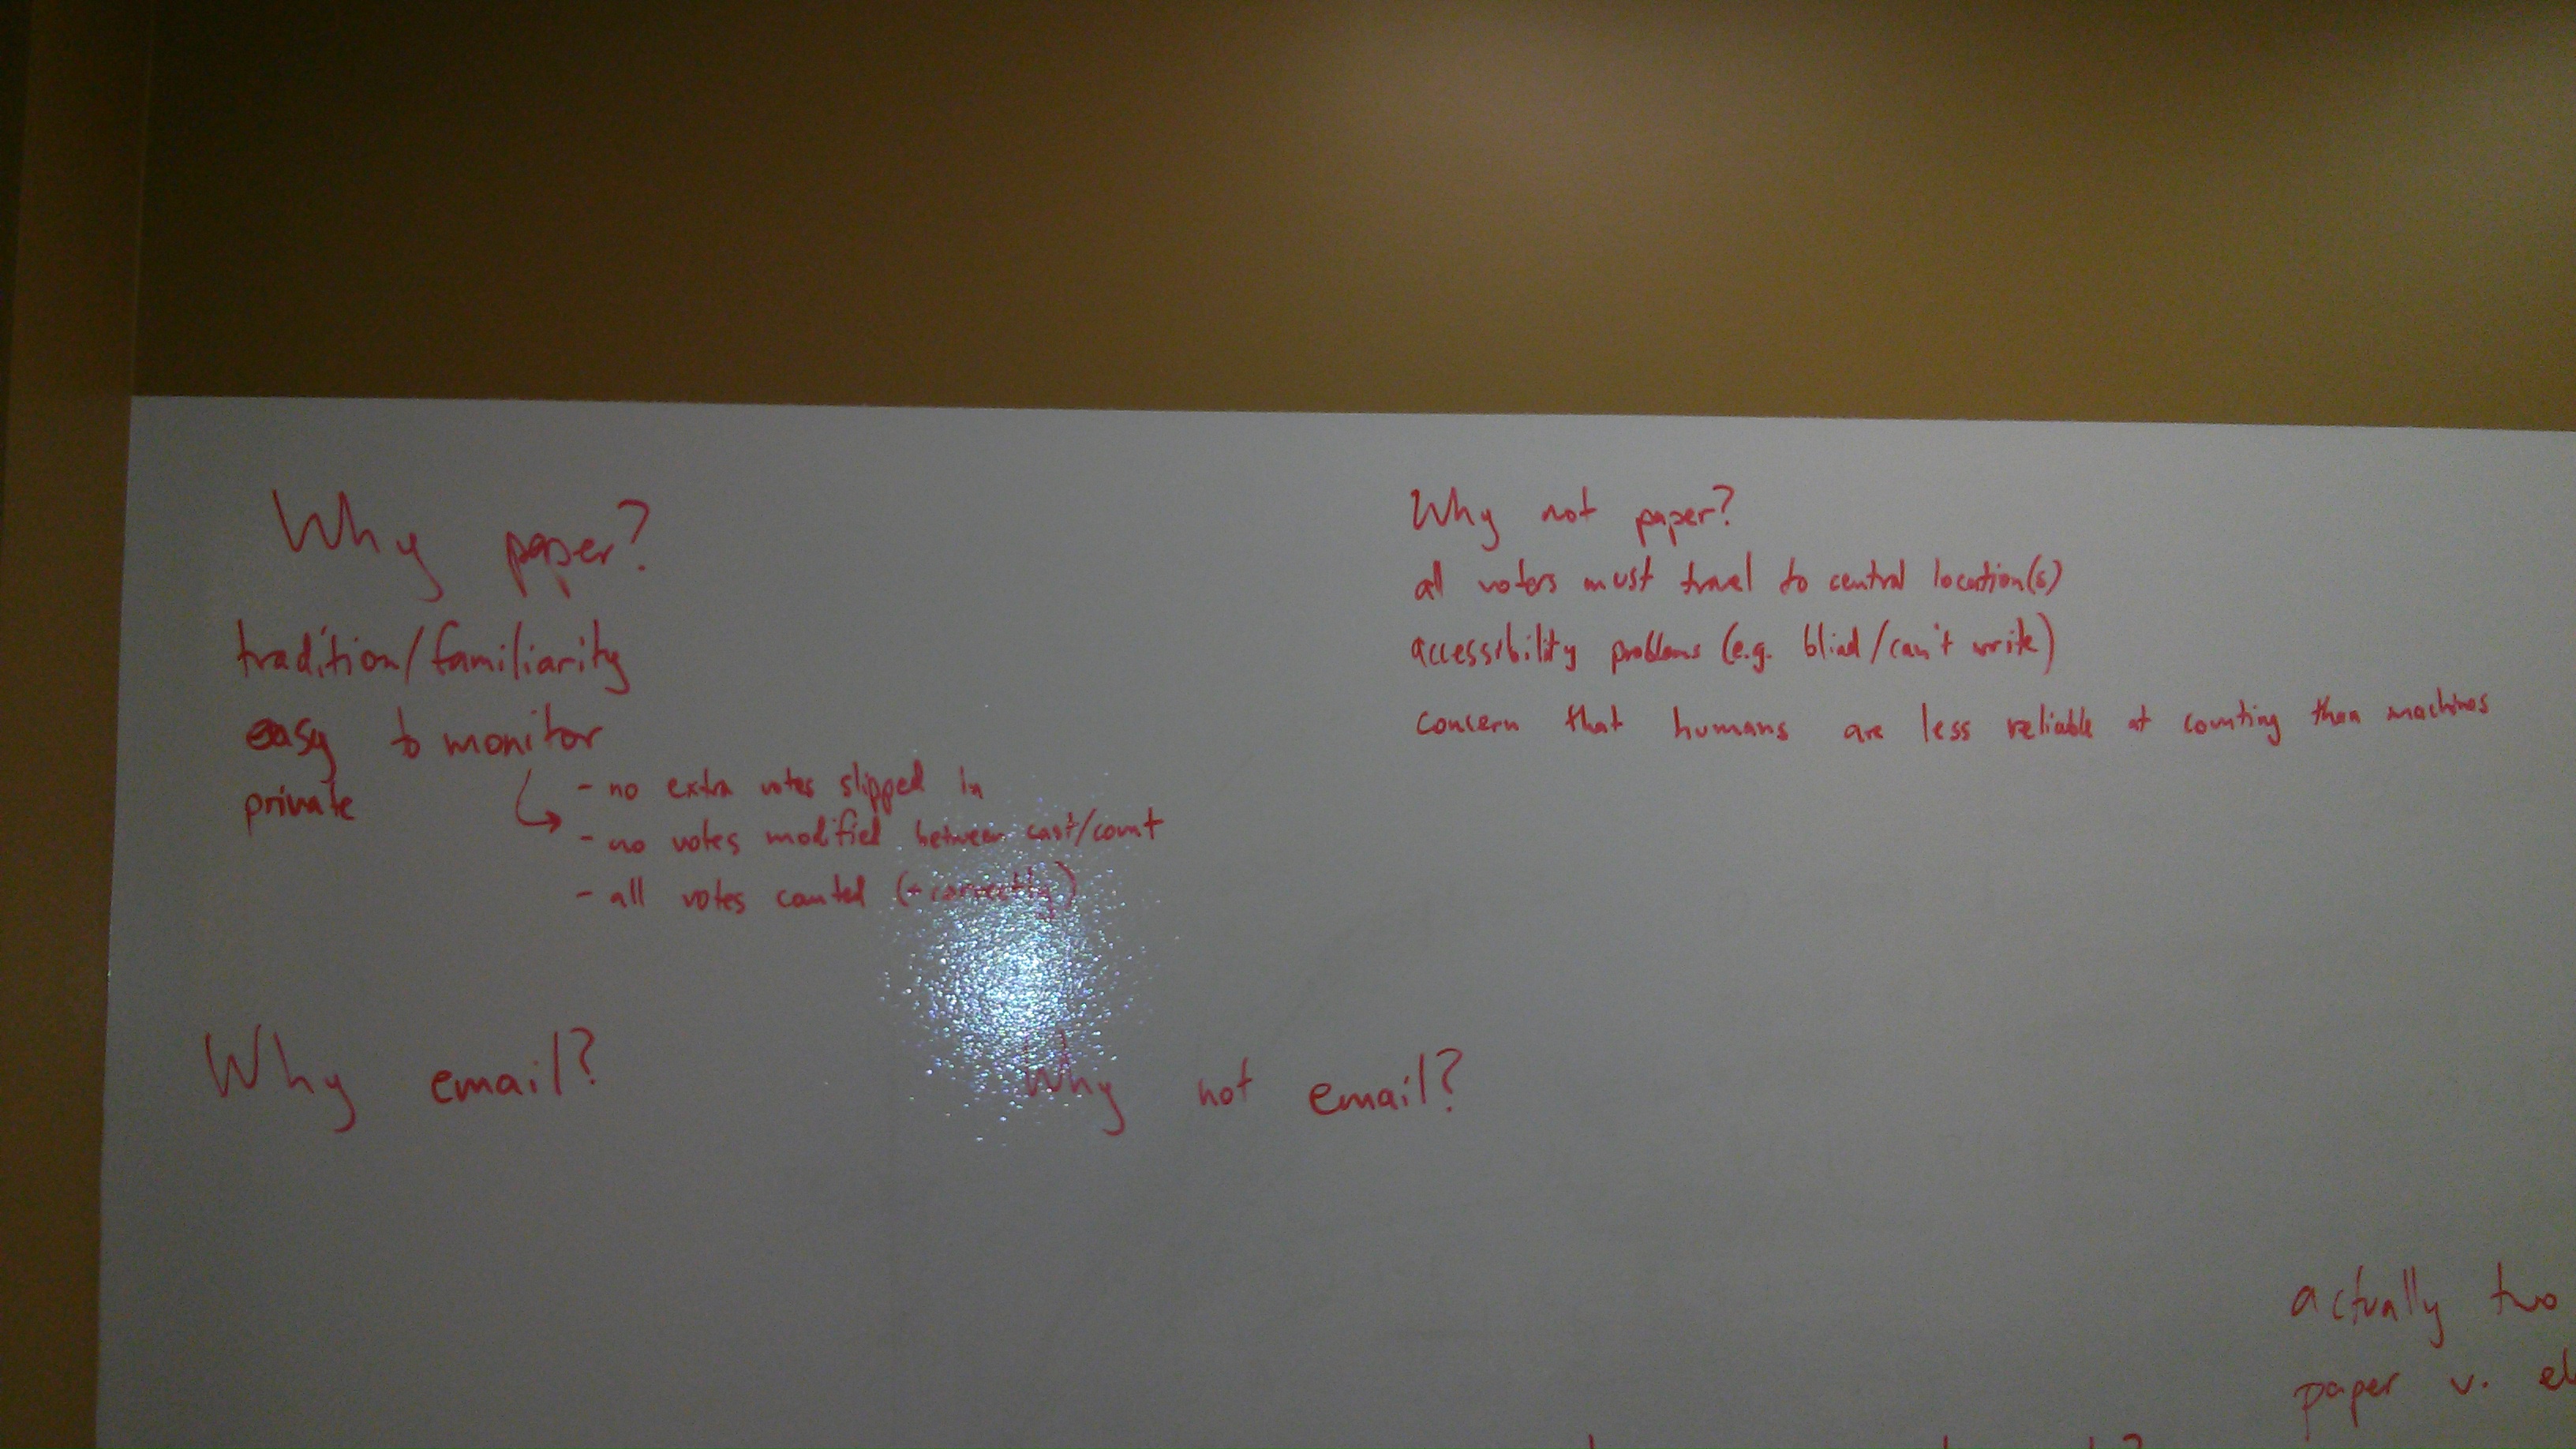 Why paper?
tradition/familiarity
easy to monitor
private
- no extra votes slipped in
- no votes modified between cast/count
- all votes counted (+ correctly)
Why not paper?
all voters must travel to central location(s)
accessibility problems (e.g. blind/can't write)
concern that humans are less reliable at counting than machines
Why email?
Why not email?
actually two
paper v.